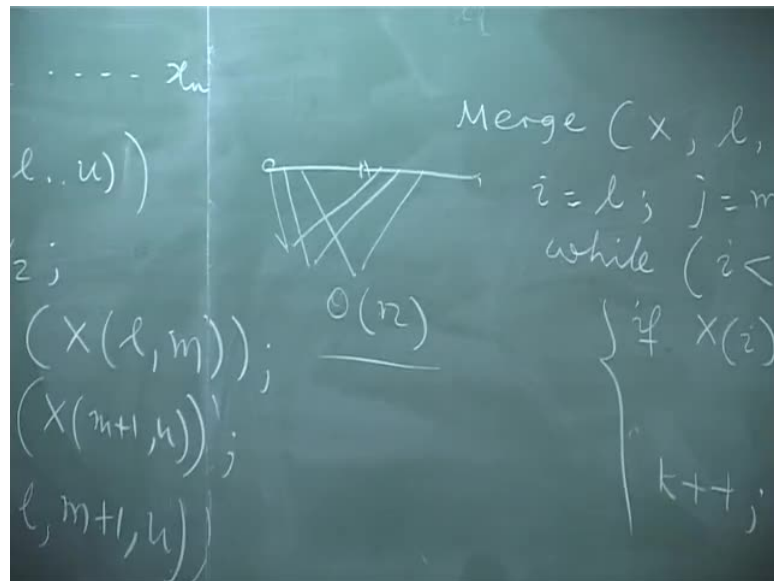 ..... xₙ
l..u))
2;
(X(l,m));
(X(m+1,u));
l,m+1,u))
O(n)
Merge (X, l,
i = l; j = m
while (i <
{ if X(i)
k++;